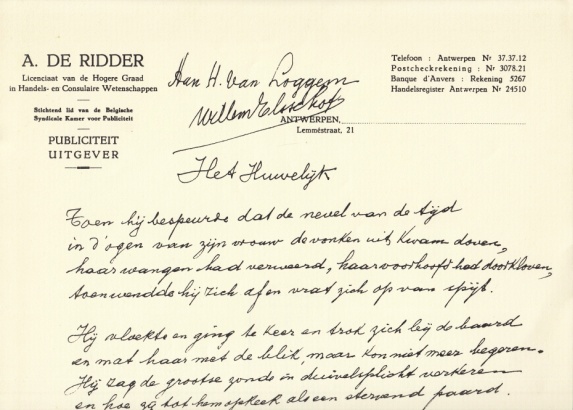 A. DE RIDDER
Licenciaat van de Hogere Graad
in Handels- en Consulaire Wetenschappen
Stichtend lid van de Belgische
Syndicale Kamer voor Publiciteit
PUBLICITEIT
UITGEVER
Aan H. Van Loggem
Willem Elsschot
Telefoon : Antwerpen Nr 37.37.12
Postcheckrekening : Nr 3078.21
Banque d'Anvers : Rekening 5267
Handelsregister Antwerpen Nr 24510
ANTWERPEN,
Lemméstraat, 21
Het Huwelijk
Toen hij bespeurde dat de nevel van de tijd
in d'ogen van zijn vrouw de vonken uit kwam doven,
haar wangen had verweerd, haar voorhoofd had doorkloven,
toen wendde hij zich af en vrat zich op van spijt.
Hij vloekte en ging te keer en trok zich bij de baard
en mat haar met de blik, maar kon niet meer begeren.
Hij zag de grootse zonde in duivelsplicht verkeren
en hoe zij tot hem opkeek als een stervend paard.